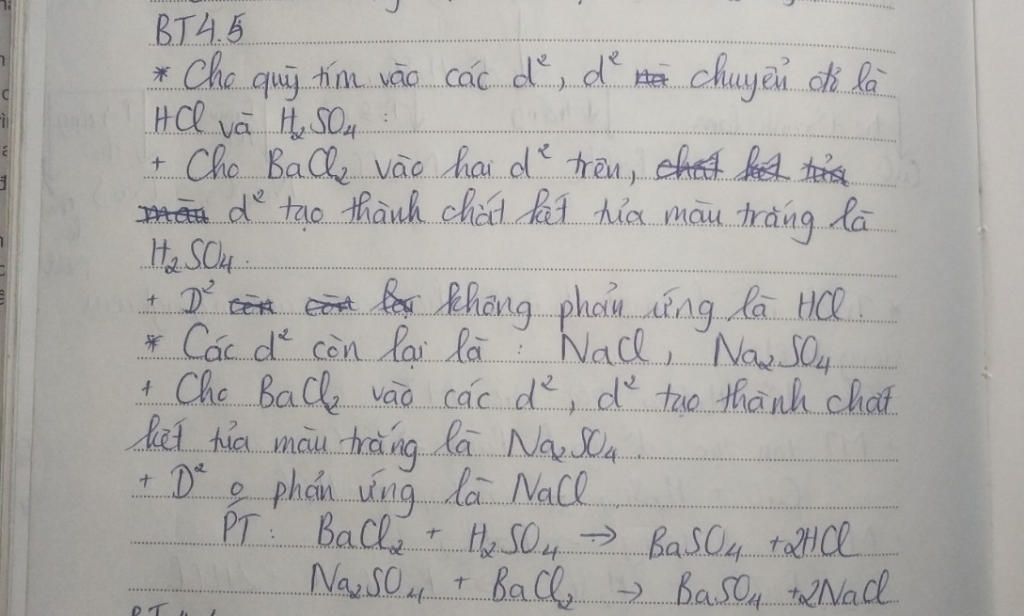 BT4.5
* Cho quỳ tím vào các d², d² chuyển đỏ là
HCl và H₂SO₄:
+ Cho BaCl₂ vào hai d² trên, chất kết tủa
màu d² tạo thành chất kết tủa màu trắng là
H₂SO₄.
+ D² còn còn lại không phản ứng là HCl.
* Các d² còn lại là : NaCl, Na₂SO₄
+ Cho BaCl₂ vào các d², d² tạo thành chất
kết tủa màu trắng là Na₂SO₄.
+ D² o phản ứng là NaCl
PT: BaCl₂ + H₂SO₄ → BaSO₄ + 2HCl
Na₂SO₄ + BaCl₂ → BaSO₄ + 2NaCl